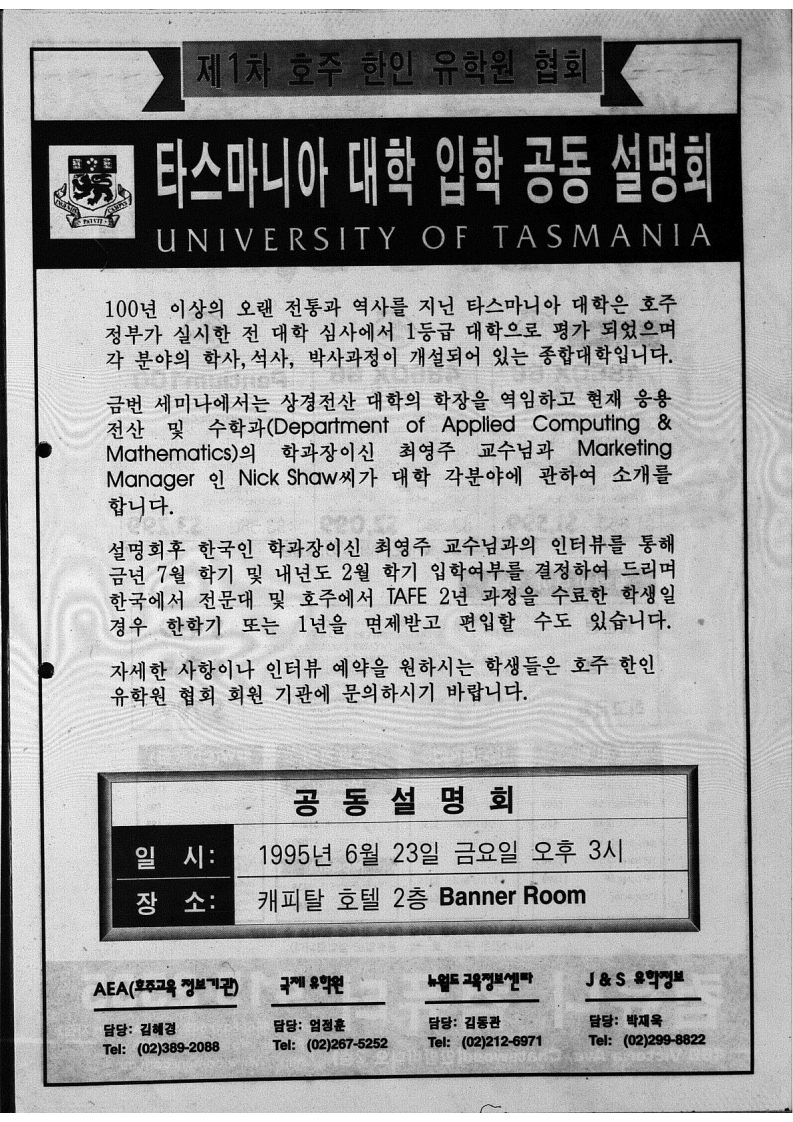 제1차 호주 한인 유학원 협회
타스마니아 대학 입학 공동 설명회
UNIVERSITY OF TASMANIA
100년 이상의 오랜 전통과 역사를 지닌 타스마니아 대학은 호주
정부가 실시한 전 대학 심사에서 1등급 대학으로 평가 되었으며
각 분야의 학사, 석사, 박사과정이 개설되어 있는 종합대학입니다.
금번 세미나에서는 상경전산 대학의 학장을 역임하고 현재 응용
전산 및 수학과(Department of Applied Computing &
Mathematics)의 학과장이신 최영주 교수님과 Marketing
Manager 인 Nick Shaw씨가 대학 각분야에 관하여 소개를
합니다.
설명회후 한국인 학과장이신 최영주 교수님과의 인터뷰를 통해
금년 7월 학기 및 내년도 2월 학기 입학여부를 결정하여 드리며
한국에서 전문대 및 호주에서 TAFE 2년 과정을 수료한 학생일
경우 한학기 또는 1년을 면제받고 편입할 수도 있습니다.
자세한 사항이나 인터뷰 예약을 원하시는 학생들은 호주 한인
유학원 협회 회원 기관에 문의하시기 바랍니다.
공동설명회
일 시: 1995년 6월 23일 금요일 오후 3시
장 소: 캐피탈 호텔 2층 Banner Room
AEA(호주교육 정보기관)
담당: 김혜경
Tel: (02)389-2088
국제 유학원
담당: 엄정훈
Tel: (02)267-5252
뉴월드 교육정보센타
담당: 김동관
Tel: (02)212-6971
J & S 유학정보
담당: 박재욱
Tel: (02)299-8822